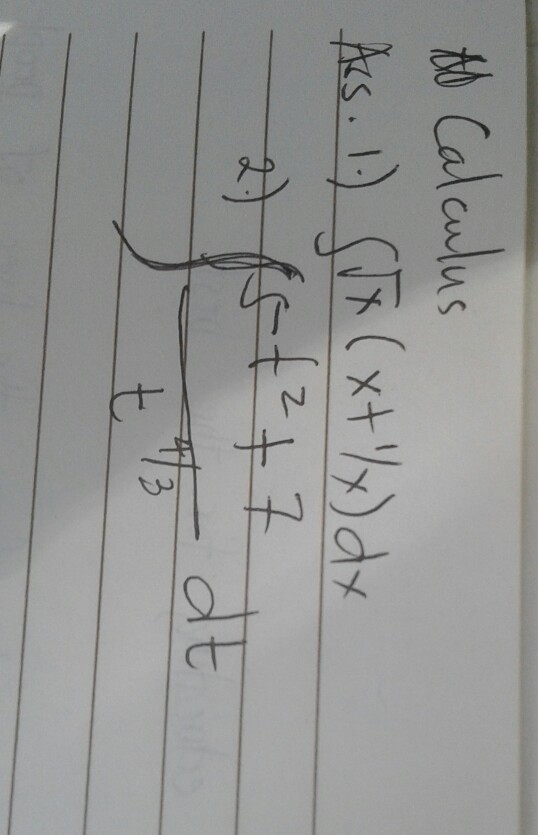 Calculus
Ass. 1.) ∫√x (x+1/x) dx
2.) ∫ 5-t²+7 / t^4/3 dt